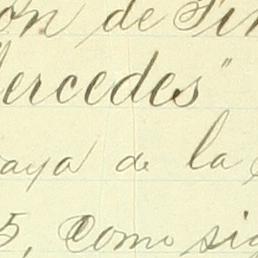 ón de Fin
Mercedes"
aya de la
5, como sig